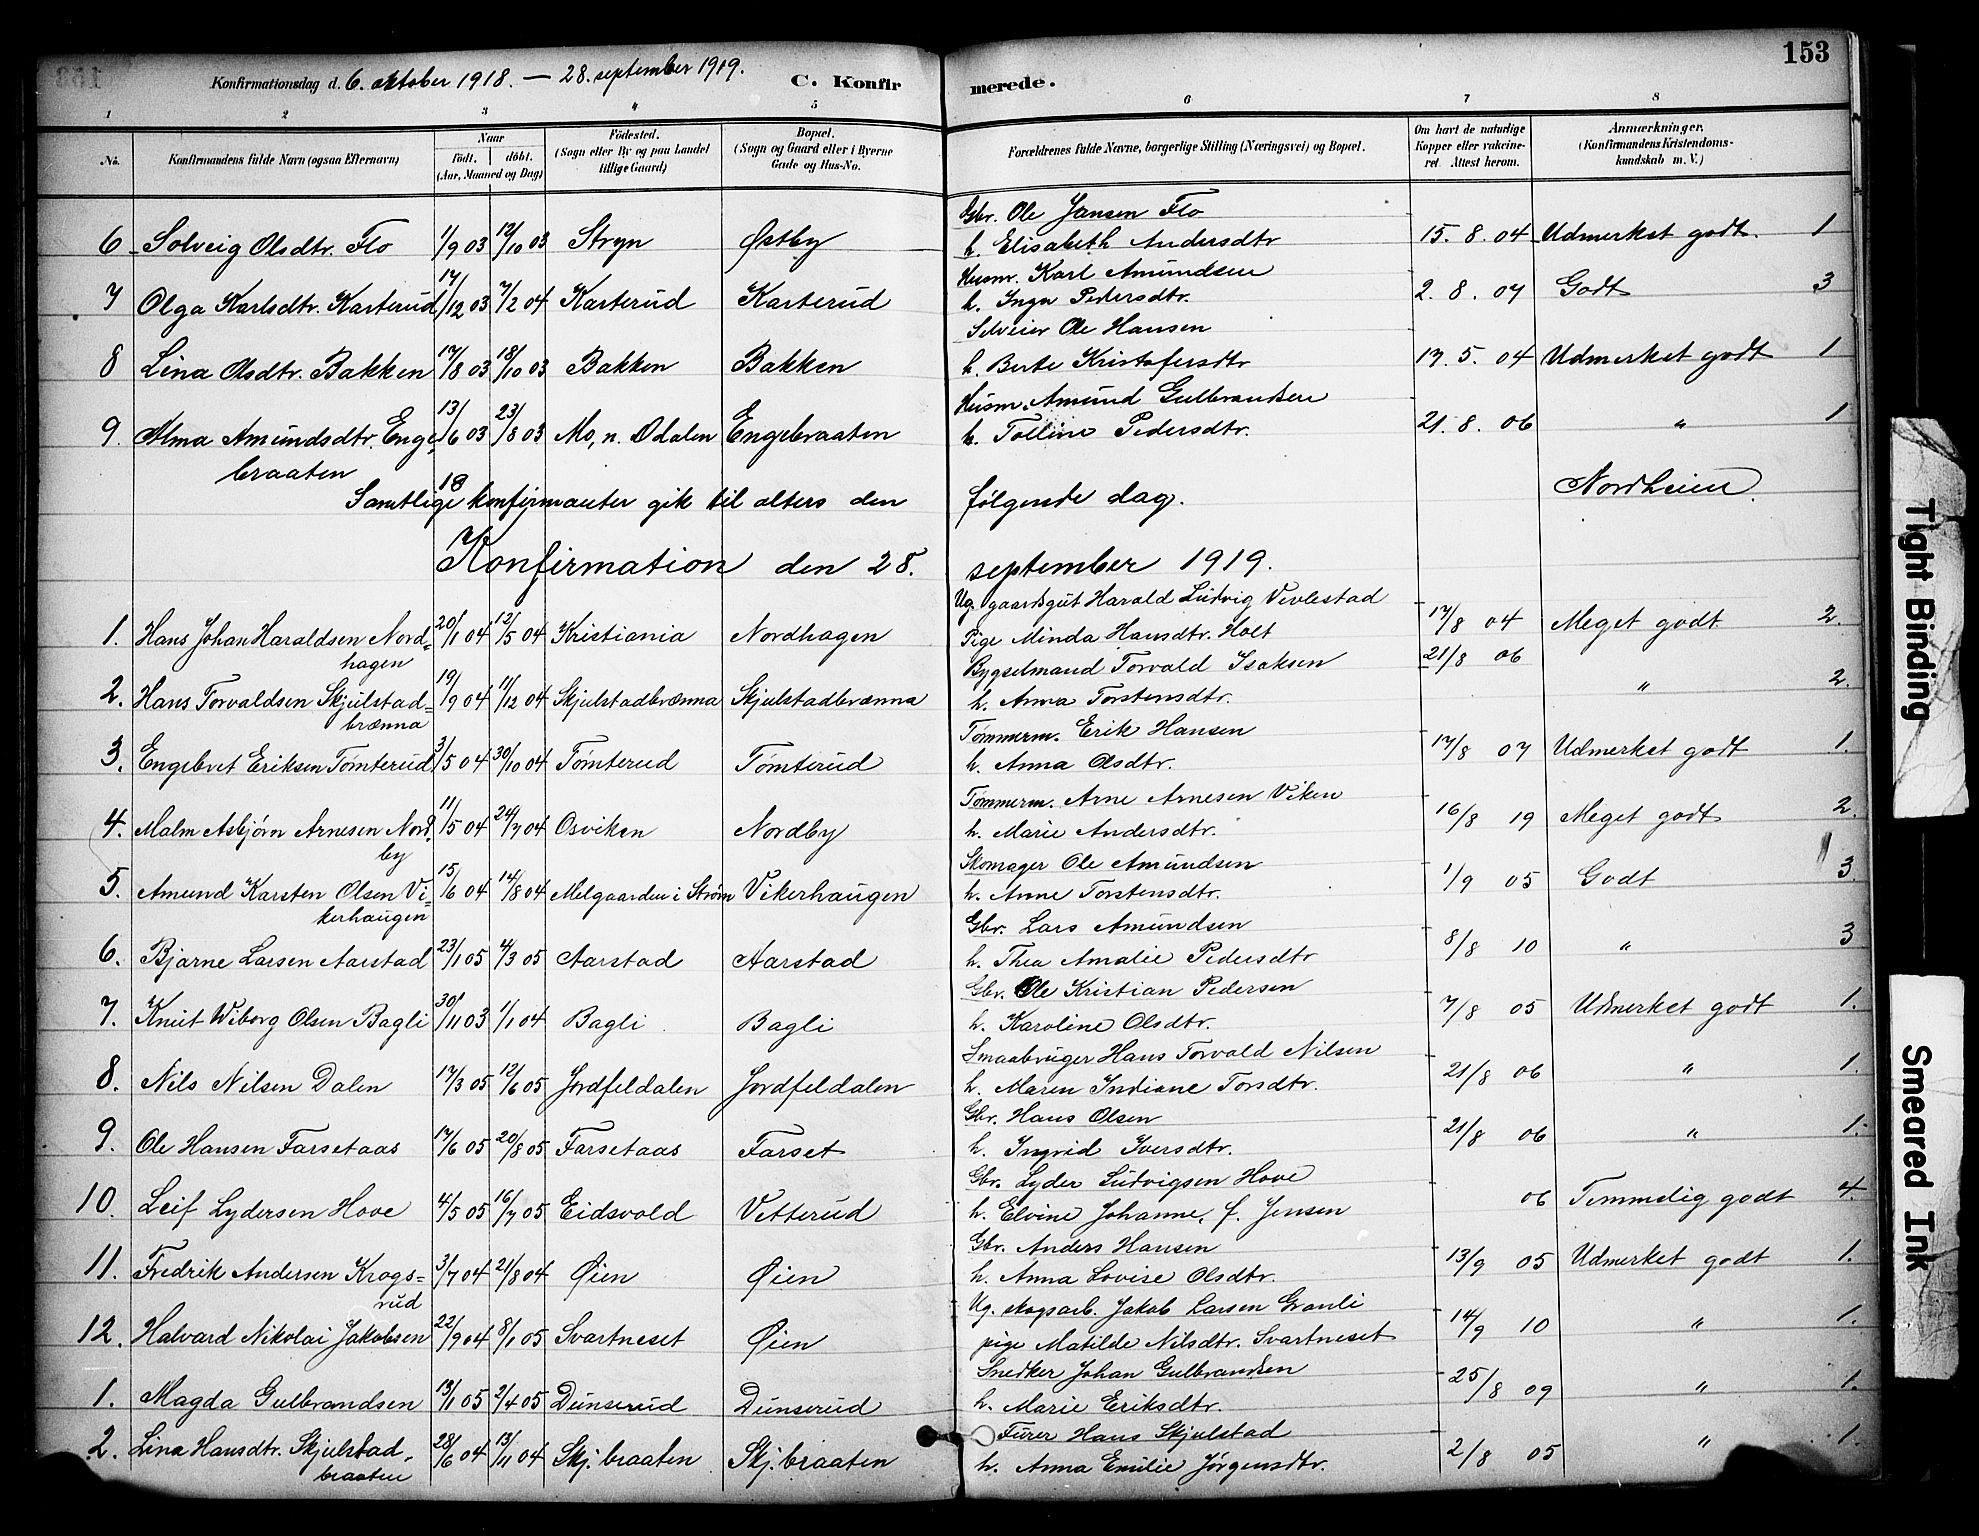 153
Konfirmationsdag d. 6. oktober 1918. — 28. september 1919. C. Konfirmerede.
1 2 3 4 5 6 7 8
No. Konfirmandens fulde Navn (ogsaa Efternavn) Naar født. døbt. (Aar, Maaned og Dag) Fødested. (Sogn eller By og paa Landet tillige Gaard) Bopæl. (Sogn og Gaard eller i Byerne Gade og Hus-No. Forældrenes fulde Navne, borgerlige Stilling (Næringsvei) og Bopæl. Om havt de naturlige Kopper eller vakcineret. Attest herom. Anmærkninger. (Konfirmandens Kristendomskundskab m. V.)
Gbr. Ole Jansen Flo
6 Solveig Olsdtr. Flo 1/9 03 12/10 03 Stryn Østby h. Elisabeth Andersdtr 15. 8. 04 Udmerket godt. 1
Husm. Karl Amundsen
7 Olga Karlsdtr. Karterud 17/12 03 7/2 04 Karterud Karterud h. Inga Pedersdtr. 2. 8. 07 Godt 3
Selveier Ole Hansen
8 Lina Olsdtr. Bakken 17/8 03 18/10 03 Bakken Bakken h. Berte Kristofersdtr 17. 5. 04 Udmerket godt 1
Husm. Amund Gulbrandsen
9. Alma Amundsdtr. Enge- 13/6 03 23/8 03 Mo, n. Odalen Engebraaten h. Talline Pedersdtr. 21. 8. 06 " 1
braaten
Samtlige 18 konfirmanter gik til alters den følgende dag. Nordheim.
Konfirmation den 28. september 1919.
Ug. gaardsgut Harald Ludvig Vivlestad
1. Hans Johan Haraldsen Nord= 20/1 04 12/5 04 Kristiania Nordhagen Pige Minda Hansdtr. Holt 17/8 04 Meget godt 2.
hagen
Bygselmand Torvald Isaksen 21/8 06
2. Hans Torvaldsen Skjulstad= 19/9 04 11/12 04 Skjulstadbrænna Skjulstadbrænna h. Anna Torstensdtr. " 2.
brænna
Tømmerm. Erik Hansen
3. Engebret Eriksen Tømterud 3/5 04 30/10 04 Tømterud Tømterud h. Anna Olsdtr. 17/8 07 Udmerket godt 1.
Tømmerm. Arne Arnesen Viken
4. Malm Asbjørn Arnesen Nord- 11/5 04 24/7 04 Osviken Nordby h. Marie Andersdtr. 16/8 19 Meget godt 2.
by
Skomager Ole Amundsen
5. Amund Karsten Olsen Vi= 15/6 04 14/8 04 Melgaarden i Strøm Vikerhaugen h. Anne Torstensdtr. 1/9 05 Godt 3
kerhaugen
Gbr. Lars Amundsen
6. Bjarne Larsen Aarstad 23/1 05 4/3 05 Aarstad Aarstad h. Thea Amalie Pedersdtr 8/8 10 " 3
Gbr. Ole Kristian Pedersen
7. Knut Wiborg Olsen Bagli 30/11 03 1/1 04 Bagli Bagli h. Karoline Olsdtr. 7/8 05 Udmerket godt 1.
Smaabruger Hans Torvald Nilsen
8. Nils Nilsen Dalen 17/3 05 12/6 05 Jordfeldalen Jordfeldalen h. Maren Indiane Torsdtr. 21/8 06 " 1.
Gbr. Hans Olsen
9. Ole Hansen Farsetaas 17/6 05 20/8 05 Farsetaas Farset h. Ingrid Iversdtr. 21/8 06 " 1.
Gbr. Lyder Ludvigsen Hove
10. Leif Lydersen Hove 4/5 05 16/7 05 Eidsvold Vetterud h. Elvine Johanne, f. Jensen 06 Temmelig godt 4.
Gbr. Anders Hansen
11. Fredrik Andersen Krogs= 3/7 04 21/8 04 Øien Øien h. Anna Lovise Olsdtr. 13/9 05 Udmerket godt 1.
rud
Ug. skogsarb. Jakob Larsen Granli
12. Halvard Nikolai Jakobsen 22/9 04 8/1 05 Svartneset Øien pige Matilde Nilsdtr. Svartneset 14/9 10 " 1.
Snedker Johan Gulbrandsen
1. Magda Gulbrandsen 13/1 05 2/4 05 Dunserud Dunserud h. Marie Eriksdtr. 25/8 09 " 1.
Furer Hans Skjulstad
2. Lina Hansdtr. Skjulstad- 28/6 04 13/11 04 Skj. braaten Skj. braaten h. Anna Emilie Jørgensdtr. 2/8 05 " 1.
braaten
Tight Binding
Smeared Ink